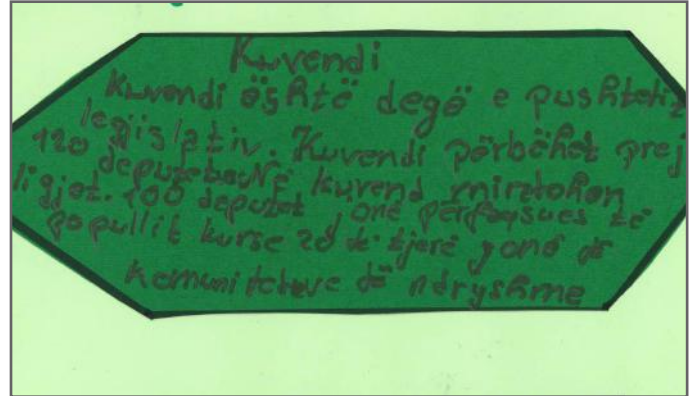 Kuvendi
Kuvendi është degë e pushtetit
legjislativ. Kuvendi përbëhet prej
120 deputetve Në kuvend miratohen
ligjet. 100 deputet janë përfaqsues të
popullit kurse 20 të tjerë janë të
komuniteteve të ndryshme